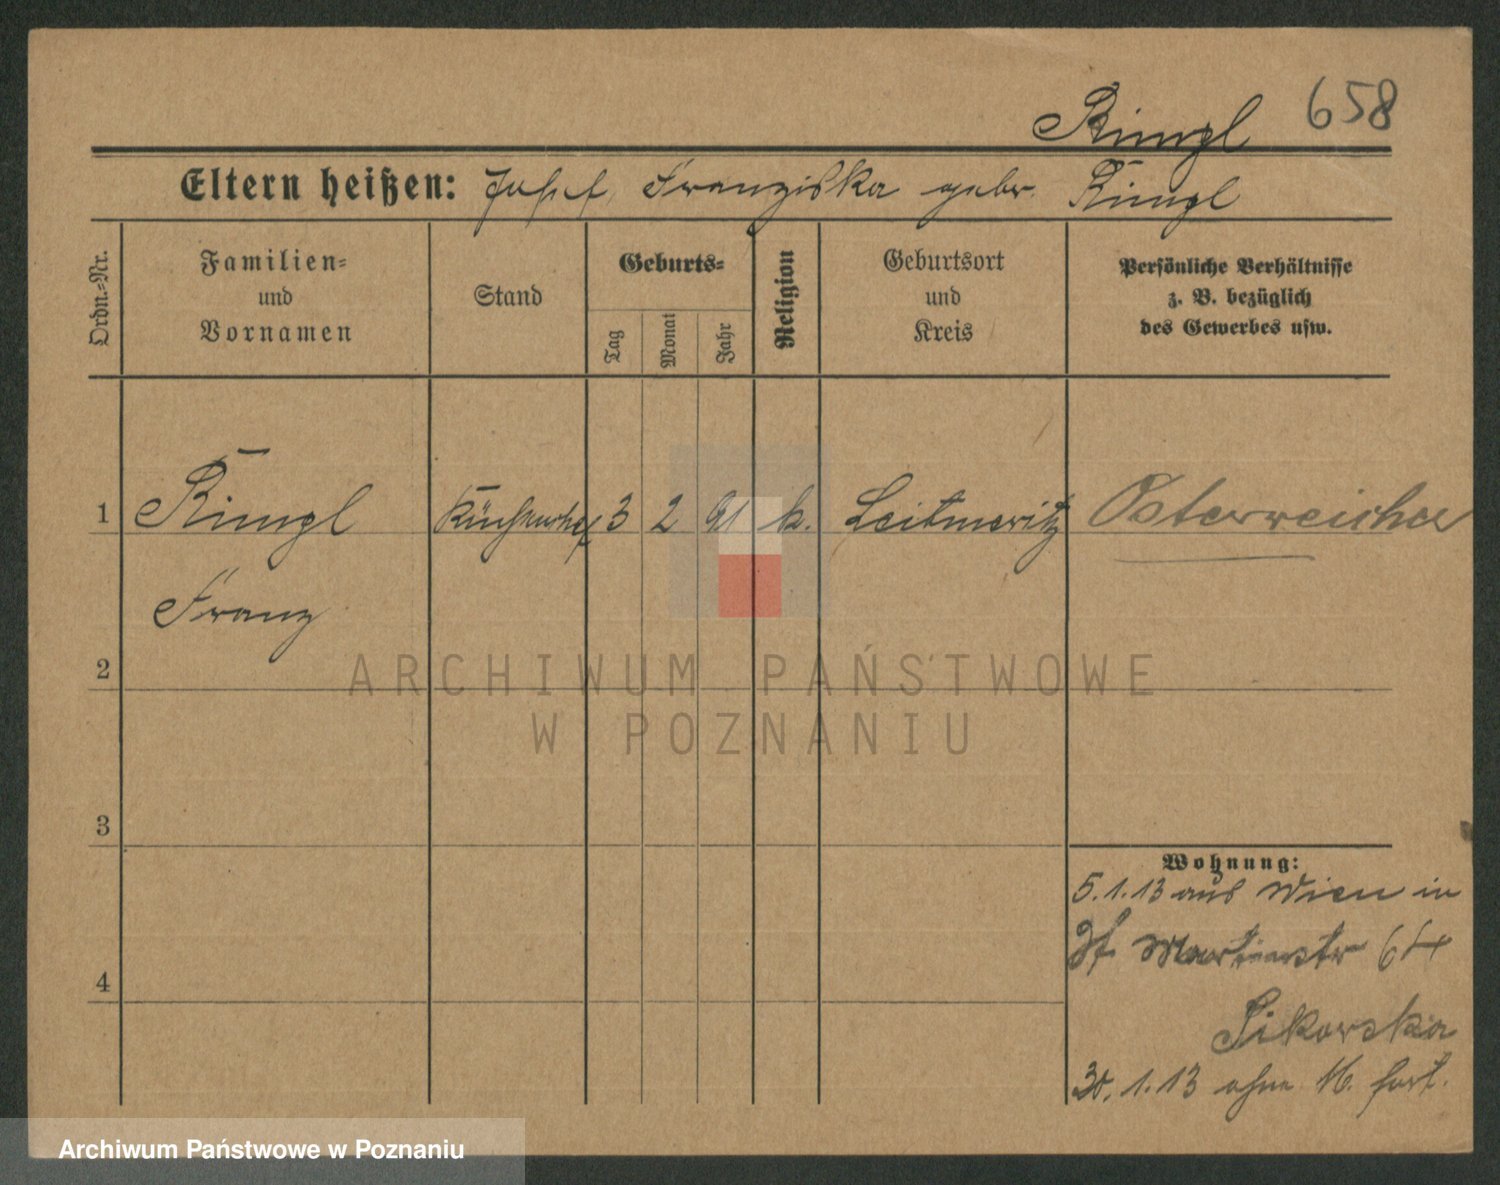 Rimgl 658
Eltern heißen: Josef, Franziska gebr. Rimgl
Ordn.-Nr.
Familien-
und
Vornamen
Stand
Geburts-
Tag
Monat
Jahr
Religion
Geburtsort
und
Kreis
Persönliche Verhältnisse
z. B. bezüglich
des Gewerbes usw.
1 Rimgl Küchenchef 3 2 91 k. Leitmeritz Österreicher
Franz
2
3
4
Wohnung:
5.1.13 aus Wien in
Martinstr 64
Sikorska
30.1.13 ohne M. fort.
ARCHIWUM PAŃSTWOWE
W POZNANIU
Archiwum Państwowe w Poznaniu